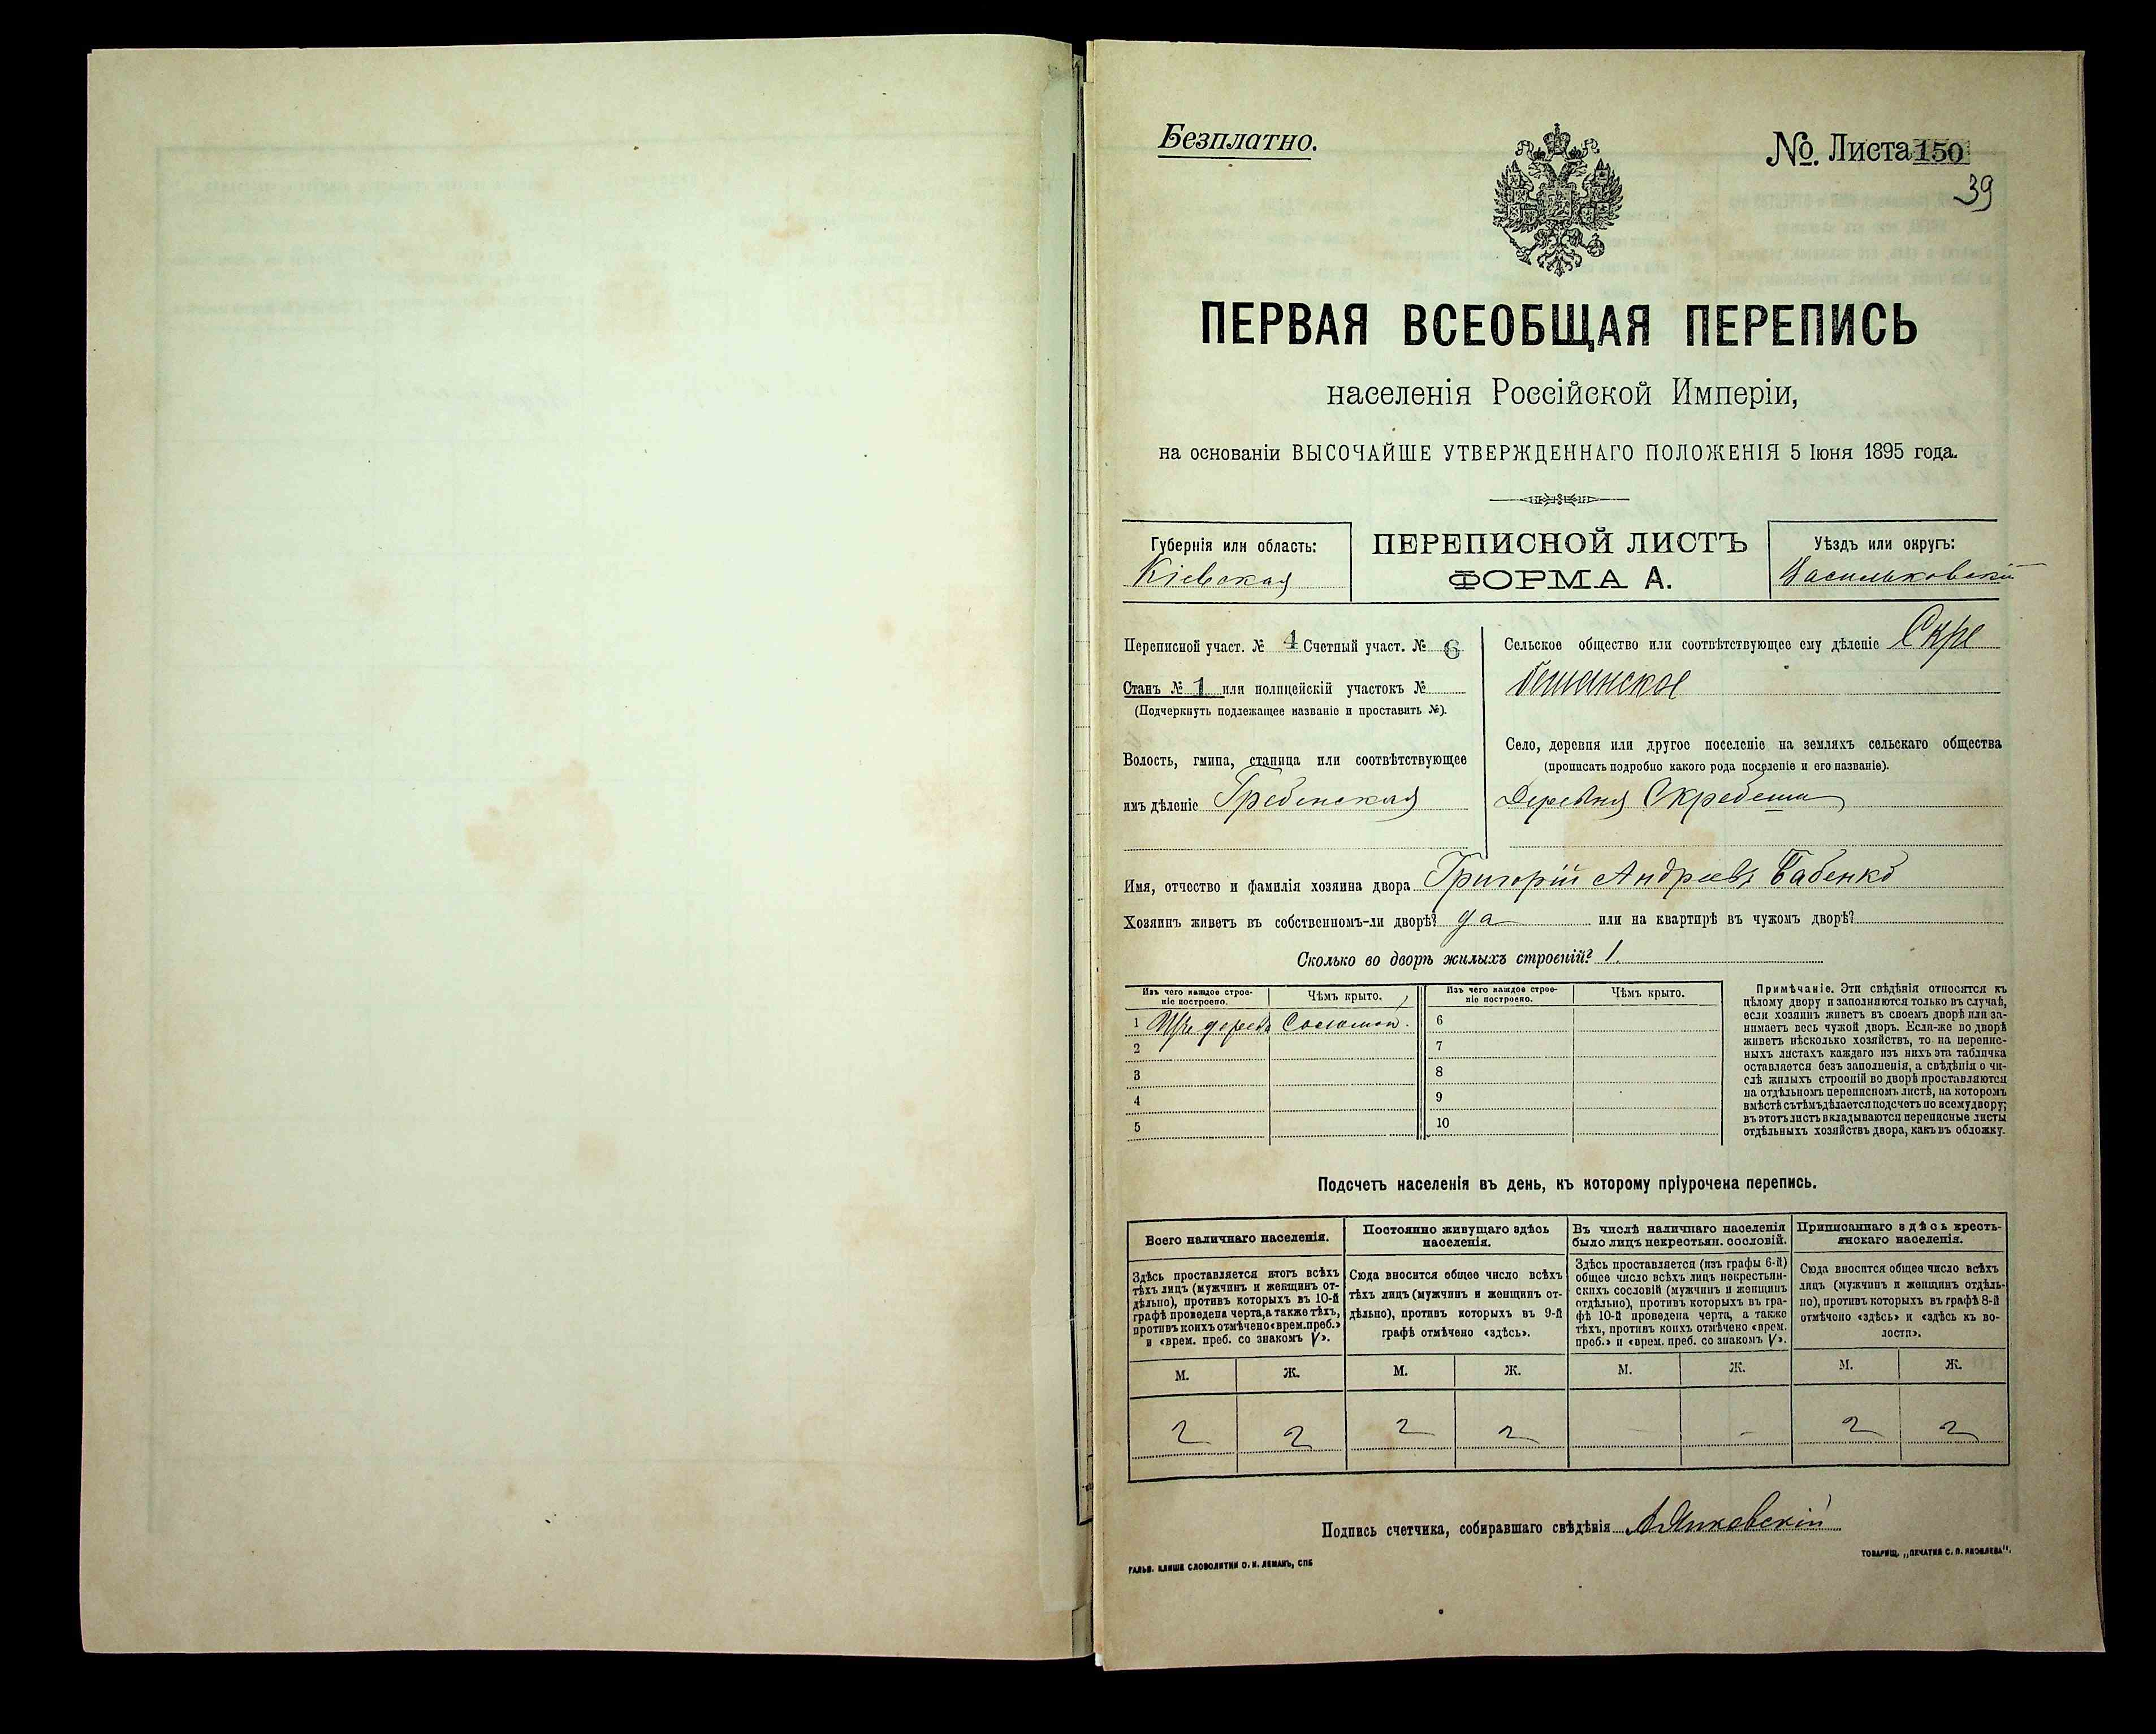 Безплатно.
№ Листа 150
39
ПЕРВАЯ ВСЕОБЩАЯ ПЕРЕПИСЬ
населенія Россійской Имперіи,
на основаніи ВЫСОЧАЙШЕ УТВЕРЖДЕННАГО ПОЛОЖЕНІЯ 5 Іюня 1895 года.
Губернія или область:
Кіевская
ПЕРЕПИСНОЙ ЛИСТЪ
ФОРМА А.
Уѣздъ или округъ:
Васильковскій
Переписной участ. № 4 Счетный участ. № 6
Станъ № 1 или полицейскій участокъ №
(Подчеркнуть подлежащее названіе и проставить №).
Волость, гмина, станица или соотвѣтствующее
имъ дѣленіе Гребенская
Сельское общество или соотвѣтствующее ему дѣленіе Скре
бешанское
Село, деревня или другое поселеніе на земляхъ сельскаго общества
(прописать подробно какого рода поселеніе и его названіе).
Деревня Скребеши
Имя, отчество и фамилія хозяина двора Григорій Андреевъ Бабенко
Хозяинъ живетъ въ собственномъ-ли дворѣ? да или на квартирѣ въ чужомъ дворѣ?
Сколько во дворѣ жилыхъ строеній? 1.
Изъ чего каждое строе-
ніе построено.
Чѣмъ крыто.
1 Изъ дерева Соломой.
2
3
4
5
Изъ чего каждое строе-
ніе построено.
Чѣмъ крыто.
6
7
8
9
10
Примѣчаніе. Эти свѣдѣнія относятся къ
цѣлому двору и заполняются только въ случаѣ,
если хозяинъ живетъ въ своемъ дворѣ или за-
нимаетъ весь чужой дворъ. Если-же во дворѣ
живетъ нѣсколько хозяйствъ, то на перепис-
ныхъ листахъ каждаго изъ нихъ эта табличка
оставляется безъ заполненія, а свѣдѣнія о чи-
слѣ жилыхъ строеній во дворѣ проставляются
на отдѣльномъ переписномъ листѣ, на которомъ
вмѣстѣ съ тѣмъ дѣлается подсчетъ по всему двору;
въ этотъ листъ вкладываются переписные листы
отдѣльныхъ хозяйствъ двора, какъ въ обложку.
Подсчетъ населенія въ день, къ которому пріурочена перепись.
Всего наличнаго населенія.
Здѣсь проставляется итогъ всѣхъ
тѣхъ лицъ (мужчинъ и женщинъ от-
дѣльно), противъ которыхъ въ 10-й
графѣ проведена черта, а также тѣхъ,
противъ коихъ отмѣчено «врем. преб.»
и «врем. преб. со знакомъ V».
М. Ж.
2 2
Постоянно живущаго здѣсь
населенія.
Сюда вносится общее число всѣхъ
тѣхъ лицъ (мужчинъ и женщинъ от-
дѣльно), противъ которыхъ въ 9-й
графѣ отмѣчено «здѣсь».
М. Ж.
2 2
Въ числѣ наличнаго населенія
было лицъ некрестьян. сословій.
Здѣсь проставляется (изъ графы 6-й)
общее число всѣхъ лицъ некрестьян-
скихъ сословій (мужчинъ и женщинъ
отдѣльно), противъ которыхъ въ гра-
фѣ 10-й проведена черта, а также
тѣхъ, противъ коихъ отмѣчено «врем.
преб.» и «врем. преб. со знакомъ V».
М. Ж.
- -
Приписаннаго здѣсь кресть-
янскаго населенія.
Сюда вносится общее число всѣхъ
лицъ (мужчинъ и женщинъ отдѣль-
но), противъ которыхъ въ графѣ 8-й
отмѣчено «здѣсь» и «здѣсь къ во-
лости».
М. Ж.
2 2
Подпись счетчика, собиравшаго свѣдѣнія
ГАЛЬВ. КЛИШЕ СЛОВОЛИТНИ О. И. ЛЕМАНЪ, СПБ
ТОВАРИЩ. „ПЕЧАТНЯ С. П. ЯКОВЛЕВА".